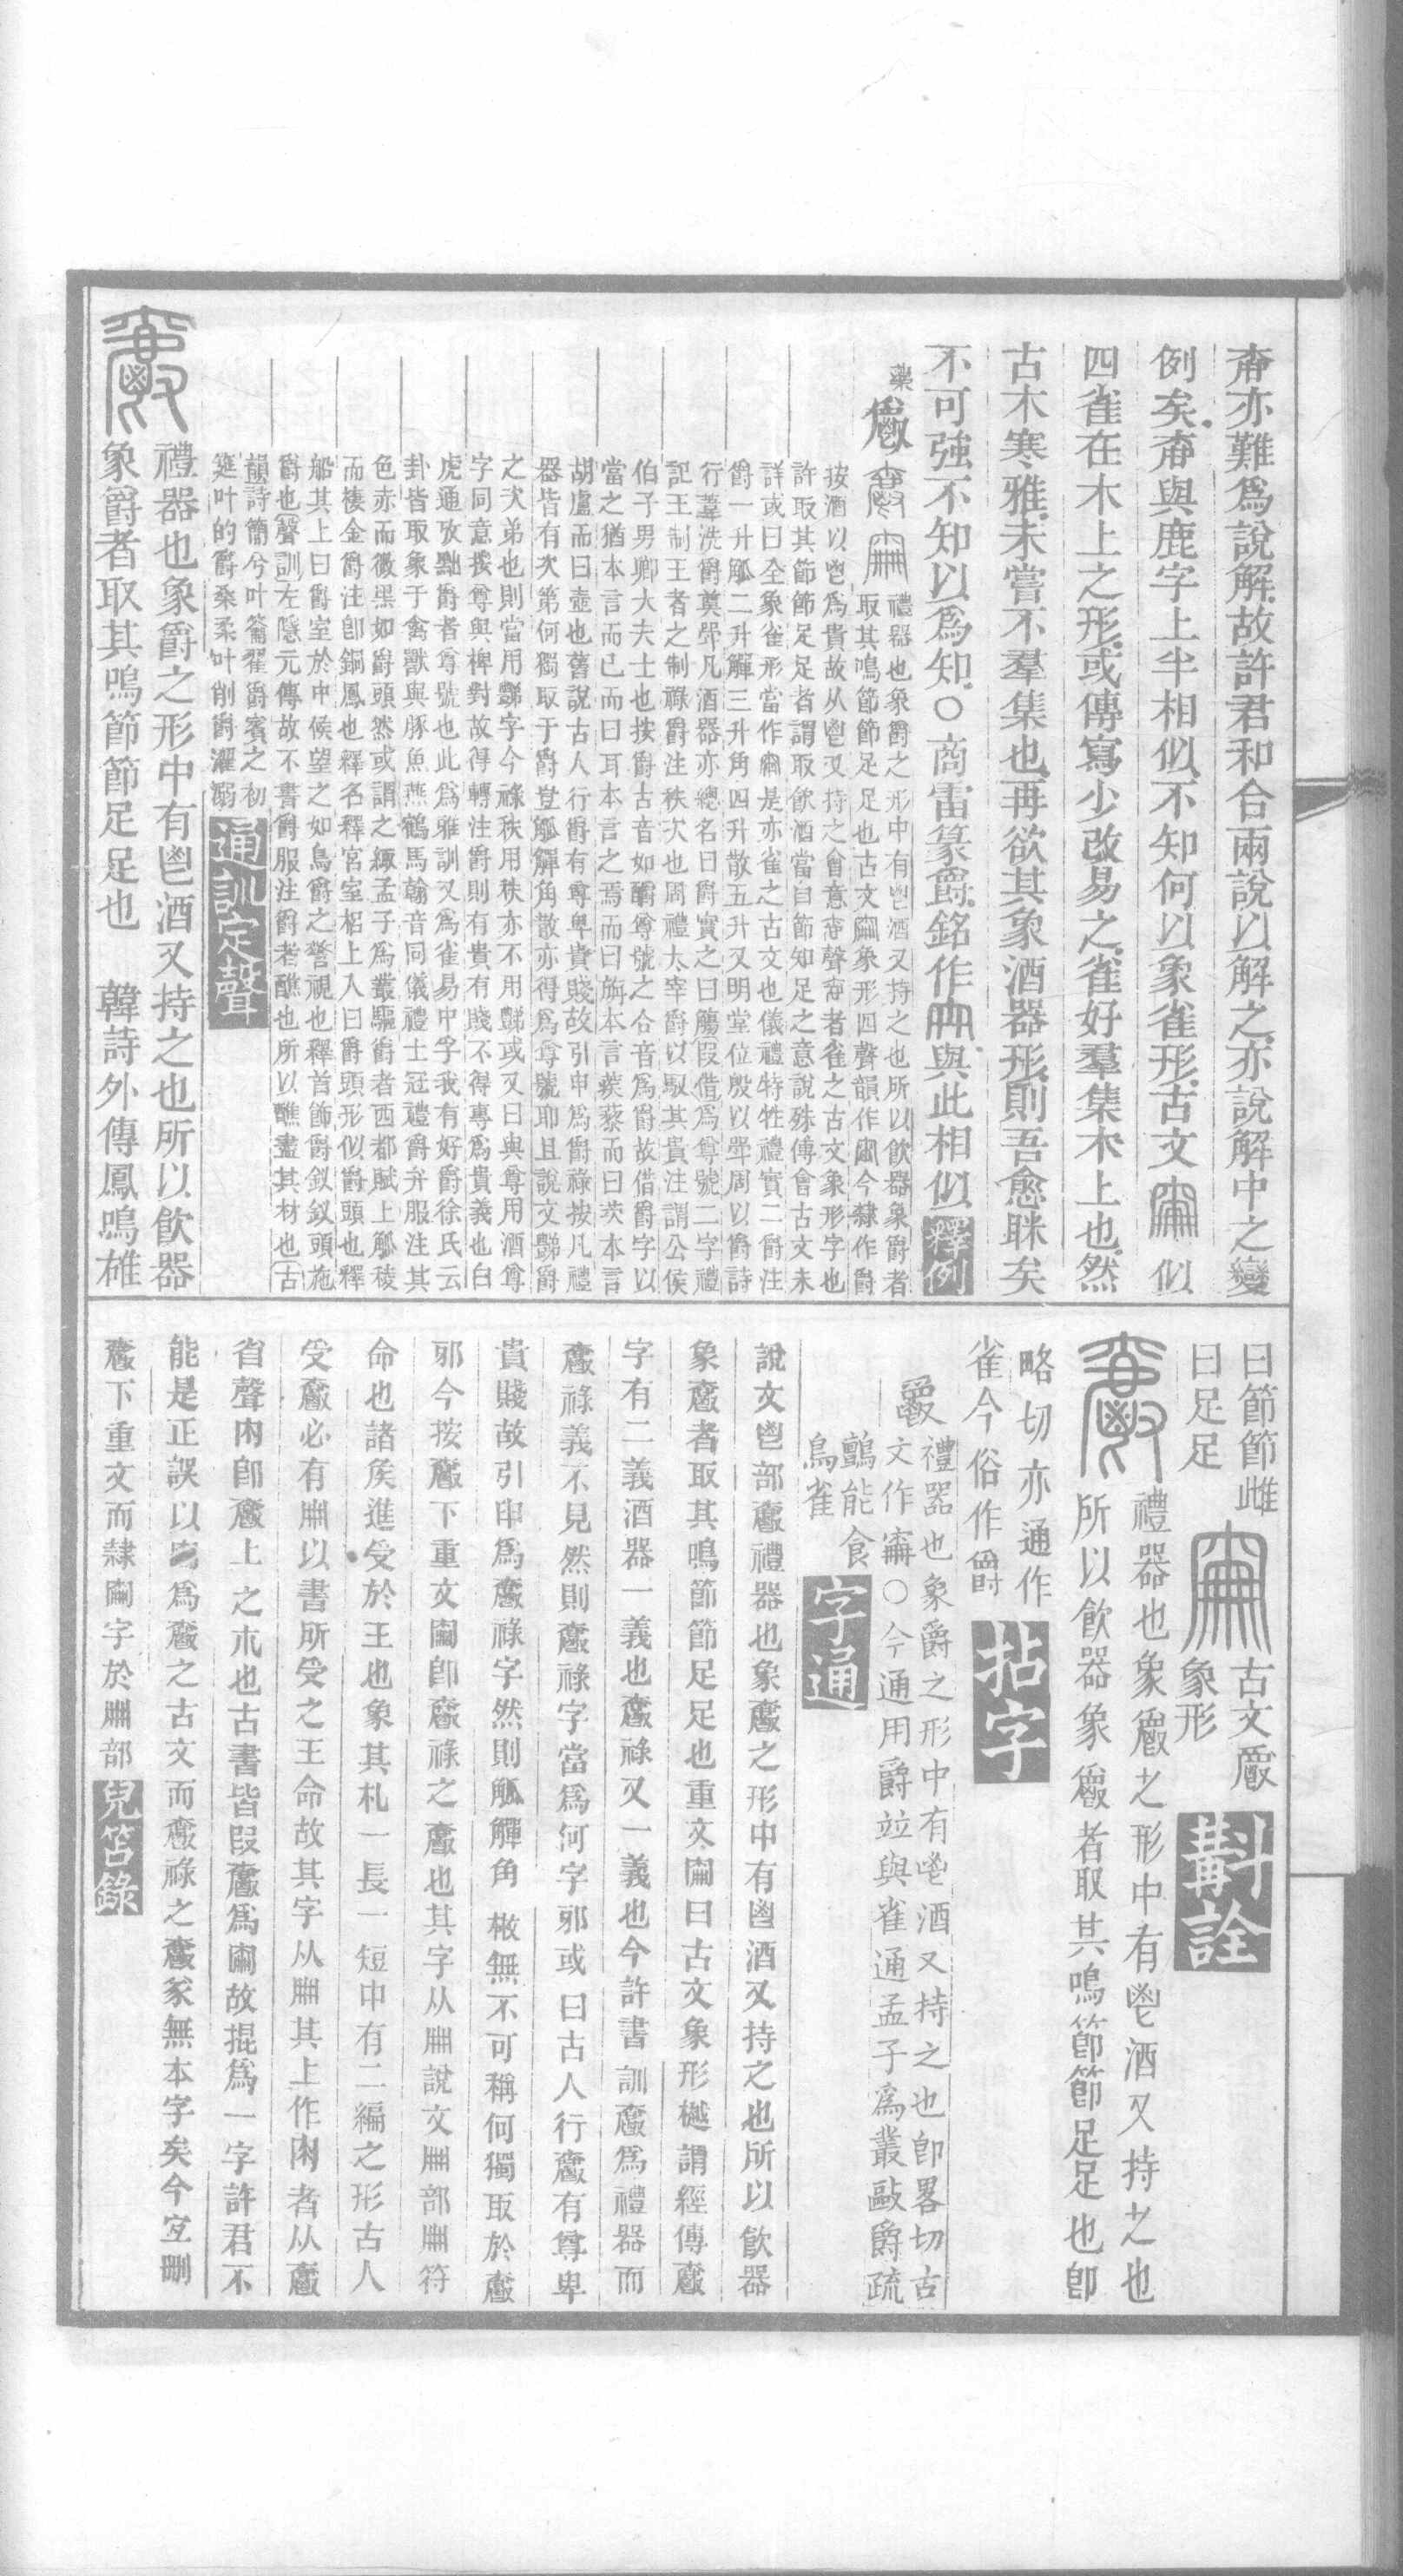 亦難爲說解故許君和合兩說以解之亦說解中之變
例矣與鹿字上半相似不知何以象雀形古文似
四雀在木上之形或傳寫少改易之雀好羣集木上也然
古木寒雅未嘗不羣集也再欲其象酒器形則吾愈眯矣
不可強不知以爲知〇商雷篆爵銘作與此相似釋例
藥
禮器也象爵之形中有鬯酒又持之也所以飮器象爵者
取其鳴節節足足也古文象形四聲韻作今隸作爵
按酒以鬯爲貴故从鬯又持之會意聲者雀之古文象形字也
許取其節節足足者謂取飮酒當自節知足之意說殊傅會古文未
詳或曰全象雀形當作是亦雀之古文也儀禮特牲禮實二爵注
爵一升觚二升觶三升角四升散五升又明堂位殷以斝周以爵詩
行葦洗爵奠斝凡酒器亦總名曰爵實之曰觴叚借爲尊號二字禮
記王制王者之制祿爵注秩次也周禮太宰爵以馭其貴注謂公侯
伯子男卿大夫士也按爵古音如釂尊號之合音爲爵故借爵字以
當之猶本言而已而曰耳本言之焉而曰旃本言蒺藜而曰茨本言
胡盧而曰壺也舊說古人行爵有尊卑貴賤故引申爲爵祿按凡禮
器皆有次第何獨取于爵豈觚觶角散亦得爲尊號耶且說文豑爵
之次弟也則當用豑字今祿秩用秩亦不用豑或又曰與尊用酒尊
字同意攗尊與椑對故得轉注爵則有貴有賤不得專爲貴義也白
虎通攷黜爵者尊號也此爲雅訓又爲雀易中孚我有好爵徐氏云
卦皆取象于禽獸與豚魚燕鶴馬翰音同儀禮士冠禮爵弁服注其
色赤而微黑如爵頭然或謂之緅孟子爲叢驅爵者西都賦上觚稜
而棲金爵注卽銅鳳也釋名釋宮室梠上入曰爵頭形似爵頭也釋
船其上曰爵室於中候望之如鳥爵之警視也釋首飾爵釵釵頭施
爵也聲訓左隱元傳故不書爵服注爵者醮也所以醮盡其材也古
韻詩簡兮叶籥翟爵賓之初
筵叶的爵桑柔叶削爵濯溺通訓定聲
禮器也象爵之形中有鬯酒又持之也所以飮器
象爵者取其鳴節節足足也　韓詩外傳鳳鳴雄
曰節節雌
曰足足
古文爵
象形
斠詮
禮器也象爵之形中有鬯酒又持之也
所以飮器象爵者取其鳴節節足足也卽
略切亦通作
雀今俗作爵拈字
禮器也象爵之形中有鬯酒又持之也卽畧切古
文作〇今通用爵竝與雀通孟子爲叢敺爵疏
鸇能食
鳥雀
字通
說文鬯部爵禮器也象爵之形中有鬯酒又持之也所以飮器
象爵者取其鳴節節足足也重文曰古文象形樾謂經傳爵
字有二義酒器一義也爵祿又一義也今許書訓爵爲禮器而
爵祿義不見然則爵祿字當爲何字邪或曰古人行爵有尊卑
貴賤故引申爲爵祿字然則觚觶角㪔無不可稱何獨取於爵
邪今按爵下重文卽爵祿之爵也其字从冊說文冊部冊符
命也諸矦進受於王也象其札一長一短中有二編之形古人
受爵必有冊以書所受之王命故其字从冊其上作者从爵
省聲卽爵上之也古書皆叚爵爲故掍爲一字許君不
能是正誤以爲爵之古文而爵祿之爵㒸無本字矣今宐刪
爵下重文而隸字於冊部兒笘錄